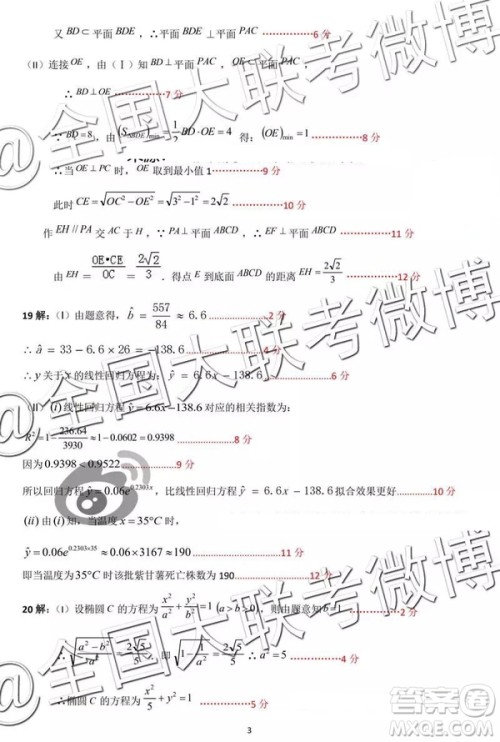 又 BD⊂平面 BDE，∴平面 BDE⊥平面 PAC ················6 分
(II) 连接 OE，由（Ⅰ）知 BD⊥平面 PAC， OE⊂平面 PAC，
∴ BD⊥OE ············7 分
∵ BD=8，由 (S△BDE)min=1/2 BD·OE=4 得：(OE)min=1 ············8 分
∴当 OE⊥PC 时，OE 取到最小值 1 ············9 分
此时 CE=√(OC²−OE²)=√(3²−1²)=2√2 ············10 分
作 EH//PA 交 AC 于 H，∵ PA⊥平面 ABCD，∴ EF⊥平面 ABCD ············11 分
由 EH=OE•CE/OC=2√2/3．得点 E 到底面 ABCD 的距离 EH=2√2/3 ············12 分
19 解：（Ⅰ）由题意得，b̂=557/84≈6.6 ············2 分
∴ â=33−6.6×26=−138.6 ············4 分
∴ y 关于 x 的线性回归方程为：ŷ=6.6x−138.6 ············6 分
Ⅱ：(i)线性回归方程 ŷ=6.6x-138.6 对应的相关指数为：
R²=1−236.64/3930≈1−0.0602=0.9398 ············8 分
因为0.9398<0.9522 ············9 分
所以回归方程 ŷ=0.06e^0.2303x，比线性回归方程 ŷ=6.6x−138.6 拟合效果更好 ············10 分
(ii) 由 (i) 知，当温度 x=35°C 时，
ŷ=0.06e^0.2303×35≈0.06×3167≈190 ············11 分
即当温度为35°C 时该批紫甘薯死亡株数为 190 ············12 分
20 解：（Ⅰ）设椭圆 C 的方程为 x²/a²+y²/b²=1 (a>b>0)，则由题意知 b=1 ············2 分
∴ √((a²−b²)/a²)=2√5/5．即 √(1−1/a²)=2√5/5．∴ a²=5 ············4 分
∴椭圆 C 的方程为 x²/5+y²=1 ············5 分
3
@全国大联考微博
@全国大联考微博
@全国大联考微博
答案圈
MXQE.COM